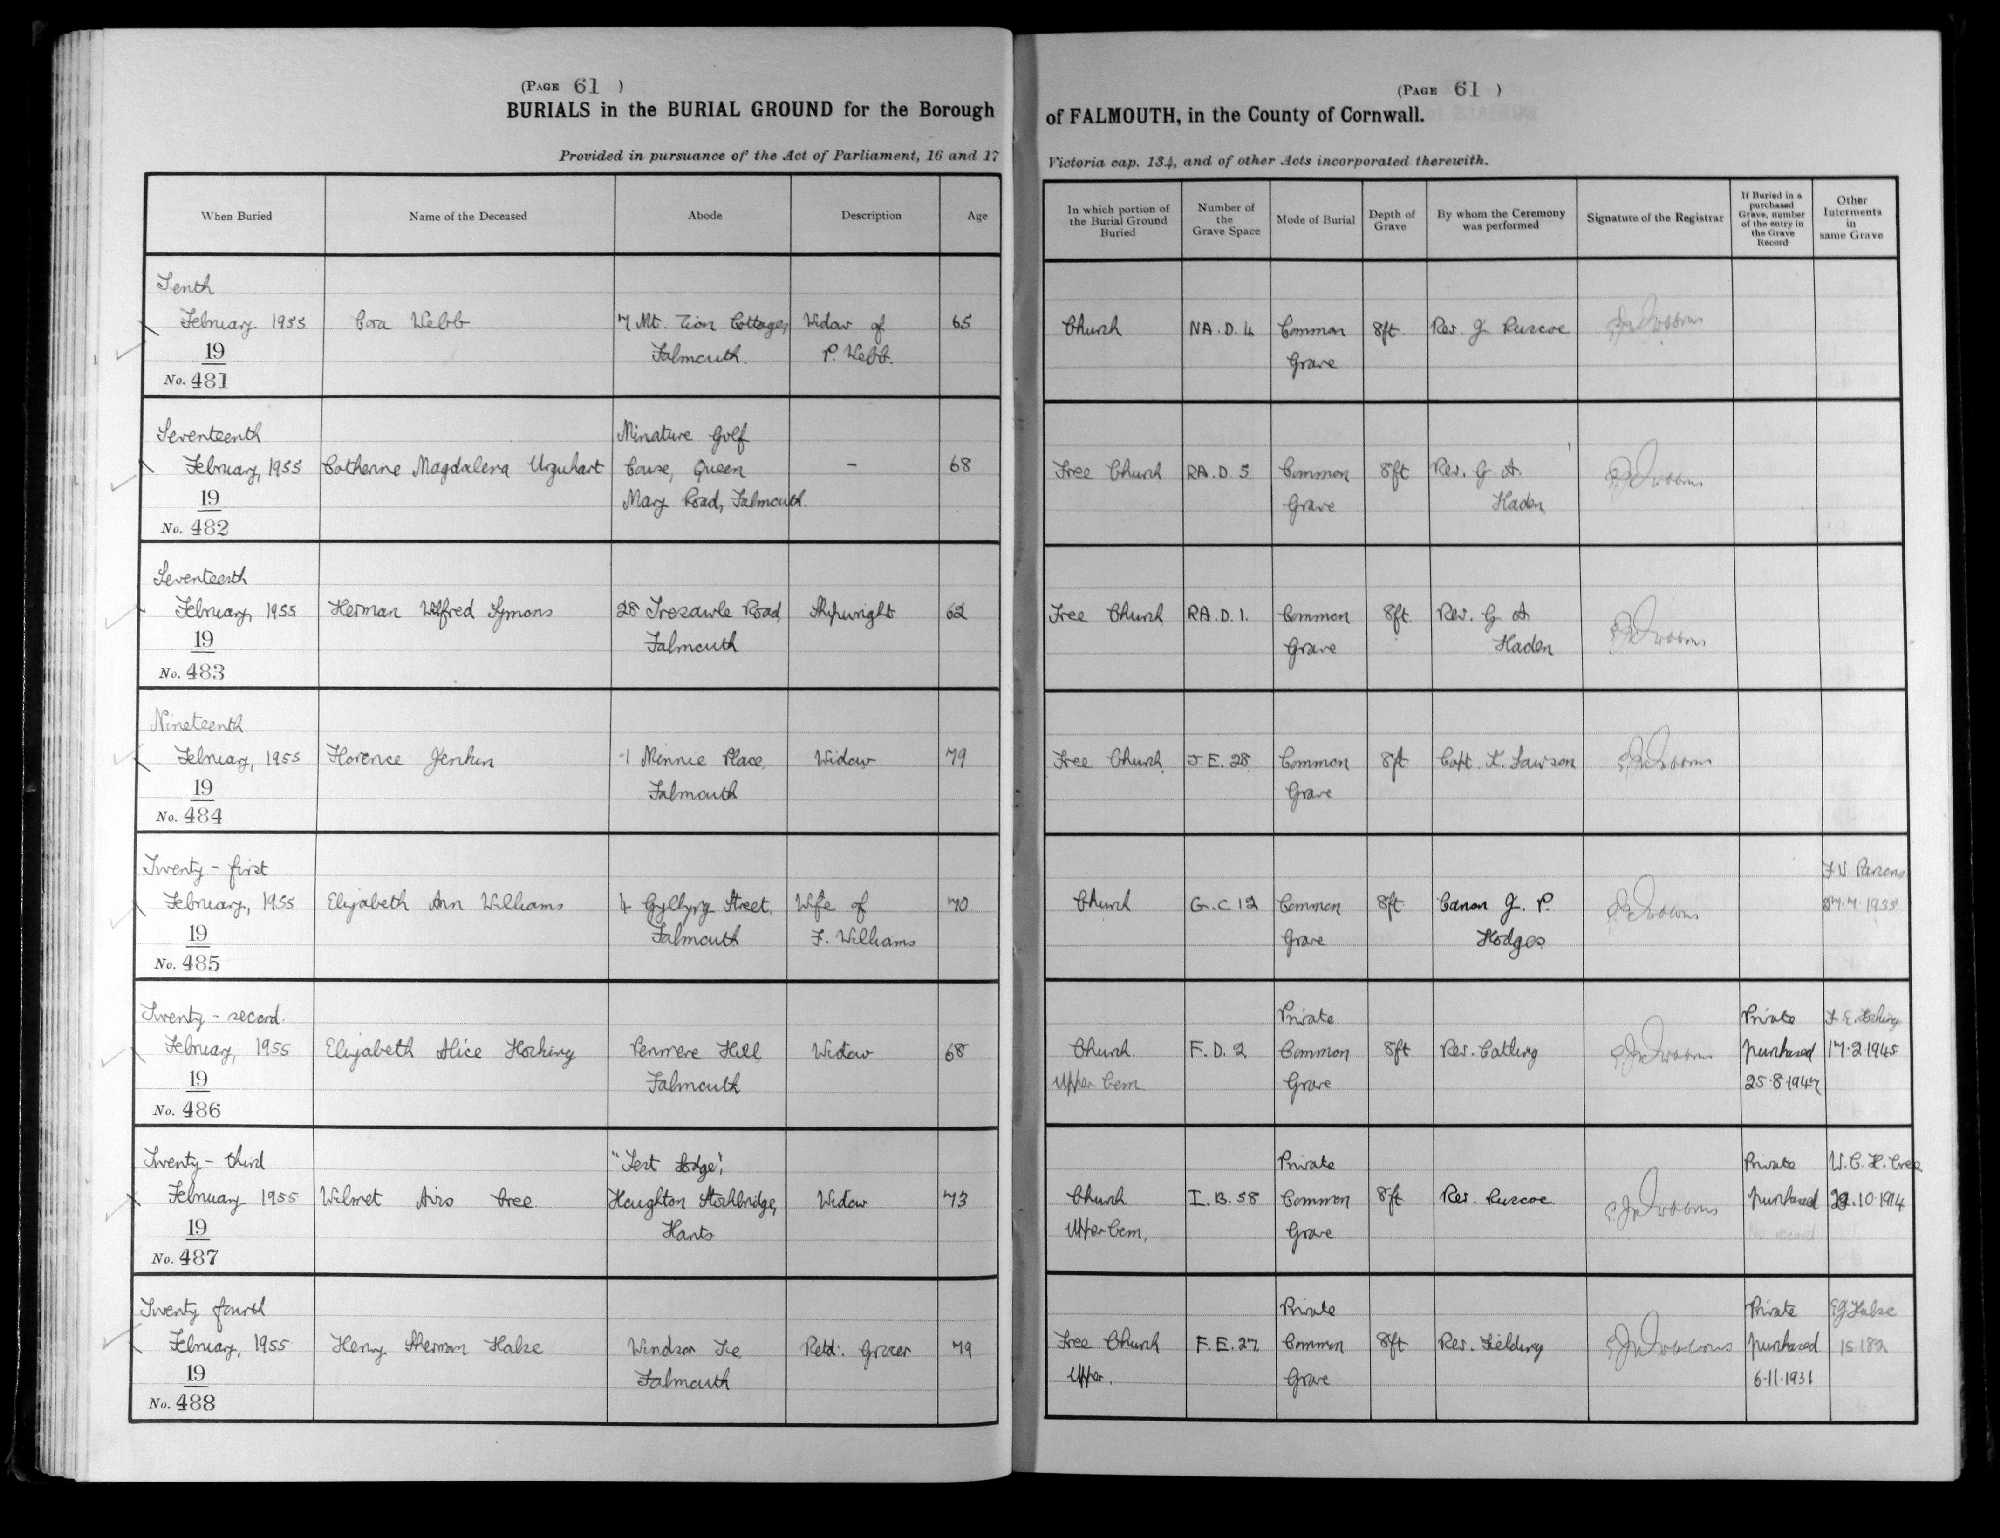 (PAGE 61 )
BURIALS in the BURIAL GROUND for the Borough
Provided in pursuance of the Act of Parliament, 16 and 17
When Buried Name of the Deceased Abode Description Age
Tenth
February 1955 Cora Webb 7 Mt. Zion Cottages, Widow of 65
19 Falmouth. P. Webb.
No. 481
Seventeenth Minature Golf
February, 1955 Catherine Magdalena Urquhart Couse, Queen - 68
19 Mary Road, Falmouth.
No. 482
Seventeenth
February, 1955 Herman Wilfred Symons 28 Trescawle Road Shipwright 62
19 Falmouth
No. 483
Nineteenth
February, 1955 Florence Jenkin 1 Minnie Place Widow 79
19 Falmouth
No. 484
Twenty - first
February, 1955 Elizabeth Ann Williams 4 Gyllyng Street, Wife of 70
19 Falmouth F. Williams
No. 485
Twenty - second.
February, 1955 Elizabeth Alice Hocking Penmere Hill Widow 68
19 Falmouth
No. 486
Twenty - third "Test Lodge",
February 1955 Wilmet Cree Houghton Stockbridge, Widow 73
19 Hants
No. 487
Twenty fourth
February, 1955 Henry Sherman Halse Windsor Tce Retd. Grocer 79
19 Falmouth
No. 488
(PAGE 61 )
of FALMOUTH, in the County of Cornwall.
Victoria cap. 134, and of other Acts incorporated therewith.
In which portion of the Burial Ground Buried
Number of the Grave Space
Mode of Burial
Depth of Grave
By whom the Ceremony was performed
Signature of the Registrar
If Buried in a purchased Grave, number of the entry in the Grave Record
Other Interments in same Grave
Church NA. D. 4 Common 8ft. Rev. J. Ruscoe
Grave
Free Church RA. D. 5 Common 8ft Rev. G A.
Grave Haden
Free Church RA. D. 1. Common 8ft. Rev. G A
Grave Haden
Free Church J E. 28 Common 8ft Capt. L. Lawson
Grave
F V Parsons
Church G. C 12 Common 8ft Canon J. P. 27.7.1935
Grave Hodges
Private Private F. E. Hocking
Church. F. D. 2 Common 8ft Rev. Catling purchased 17.2.1945
Upper Cem. Grave 25.8.1947
Private Private W. C. H. Cree
Church I. B. 58 Common 8ft Rev. Ruscoe purchased 22.10.1914
Upper Cem. Grave
Private Private Halse
Free Church F. E. 27 Common 8ft Rev. Fielding purchased
Upper. Grave 6.11.1931